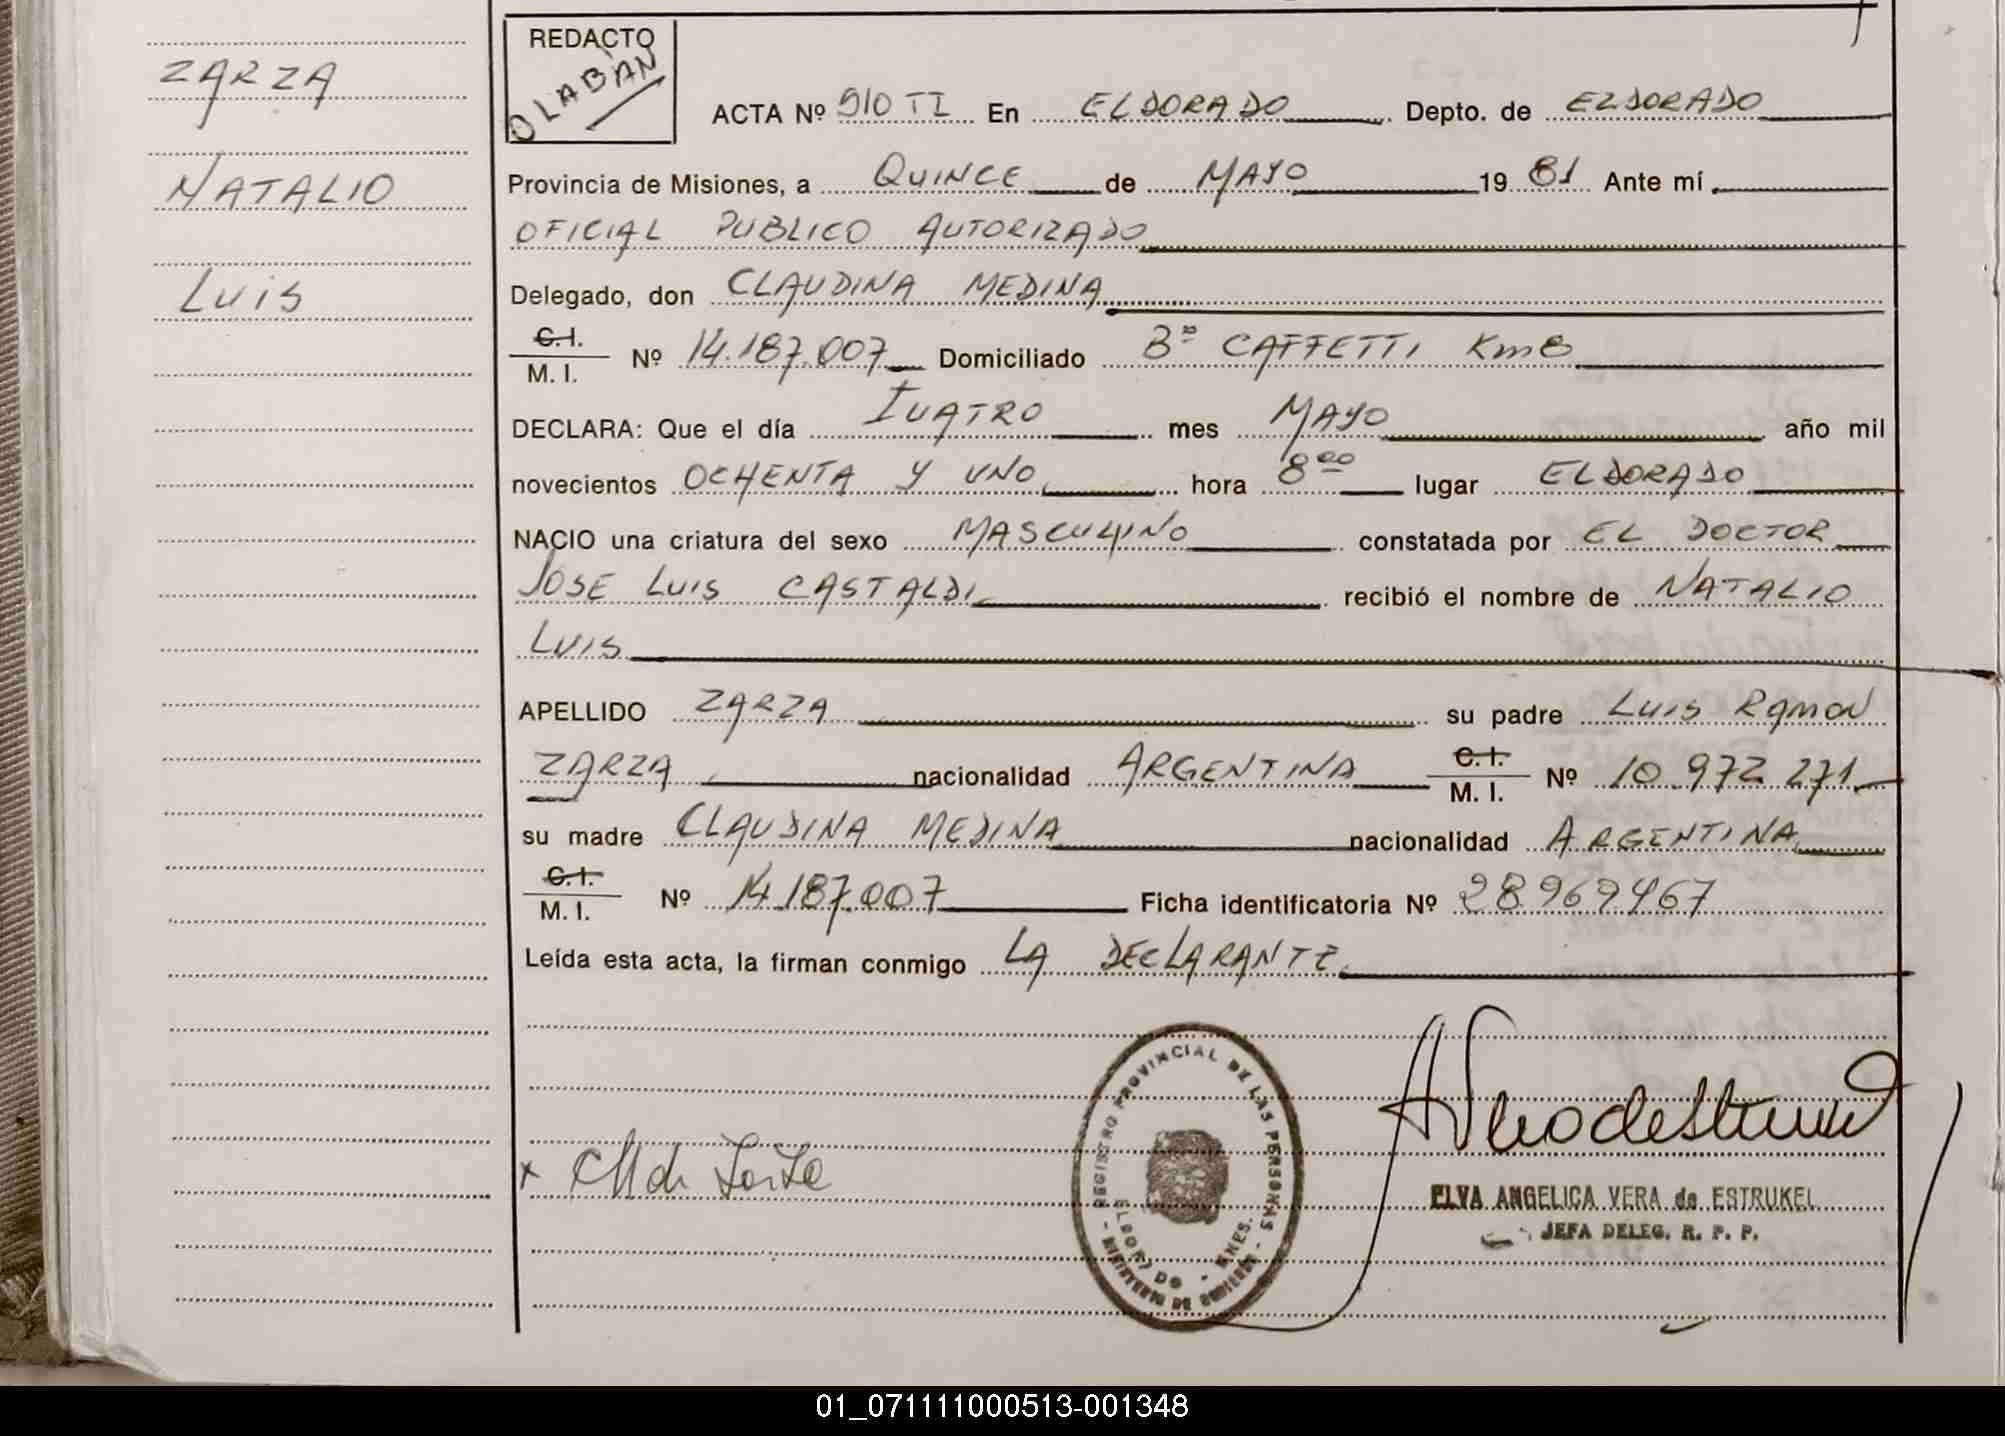 ZARZA
NATALIO
LUIS
REDACTO
OLABAN
ACTA Nº 510 TI En ELDORADO Depto. de ELDORADO
Provincia de Misiones, a QUINCE de MAYO 19 81 Ante mí
OFICIAL PUBLICO AUTORIZADO
Delegado, don CLAUDINA MEDINA
C.I.
M. I. Nº 14.187.007 Domiciliado Bº CAFFETTI Km8
DECLARA: Que el día CUATRO mes MAYO año mil
novecientos OCHENTA Y UNO hora 8 00 lugar ELDORADO
NACIO una criatura del sexo MASCULINO constatada por EL DOCTOR
JOSE LUIS CASTALDI recibió el nombre de NATALIO
LUIS
APELLIDO ZARZA su padre LUIS RAMON
ZARZA nacionalidad ARGENTINA C.I. M. I. Nº 10.972.271
su madre CLAUDINA MEDINA nacionalidad ARGENTINA
C.I.
M. I. Nº 14.187.007 Ficha identificatoria Nº 28969467
Leída esta acta, la firman conmigo LA DECLARANTE
REGISTRO PROVINCIAL DE LAS PERSONAS
MINISTERIO DE GOBIERNO
ELDORADO - MNES.
x CM de Zarza
ELVA ANGELICA VERA de ESTRUKEL
JEFA DELEG. R. P. P.
01_071111000513-001348